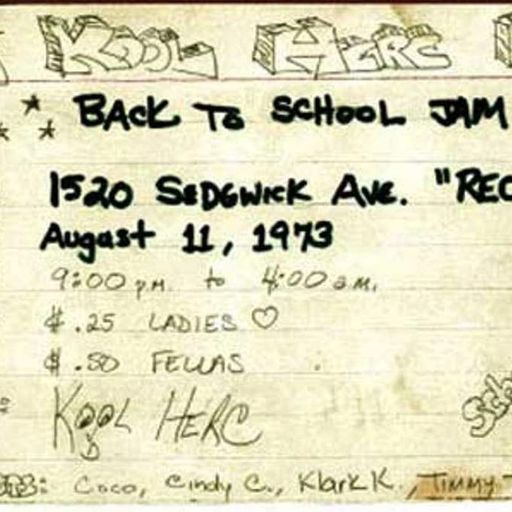 KOOL HERC
BACK TO SCHOOL JAM
1520 SEDGWICK AVE. "REC
August 11, 1973
9:00 p.m. to 4:00 a.m.
$ .25 LADIES ♡
$ .50 FELLAS
KOOL HERC
Coco, Cindy C., Klark K., TIMMY T